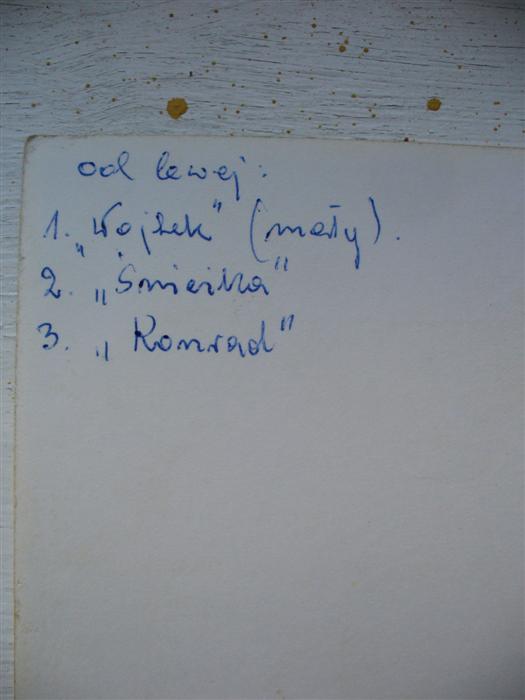 od lewej:
1. „Wojtek" (mały).
2. „Śmieszka"
3. „Konrad"